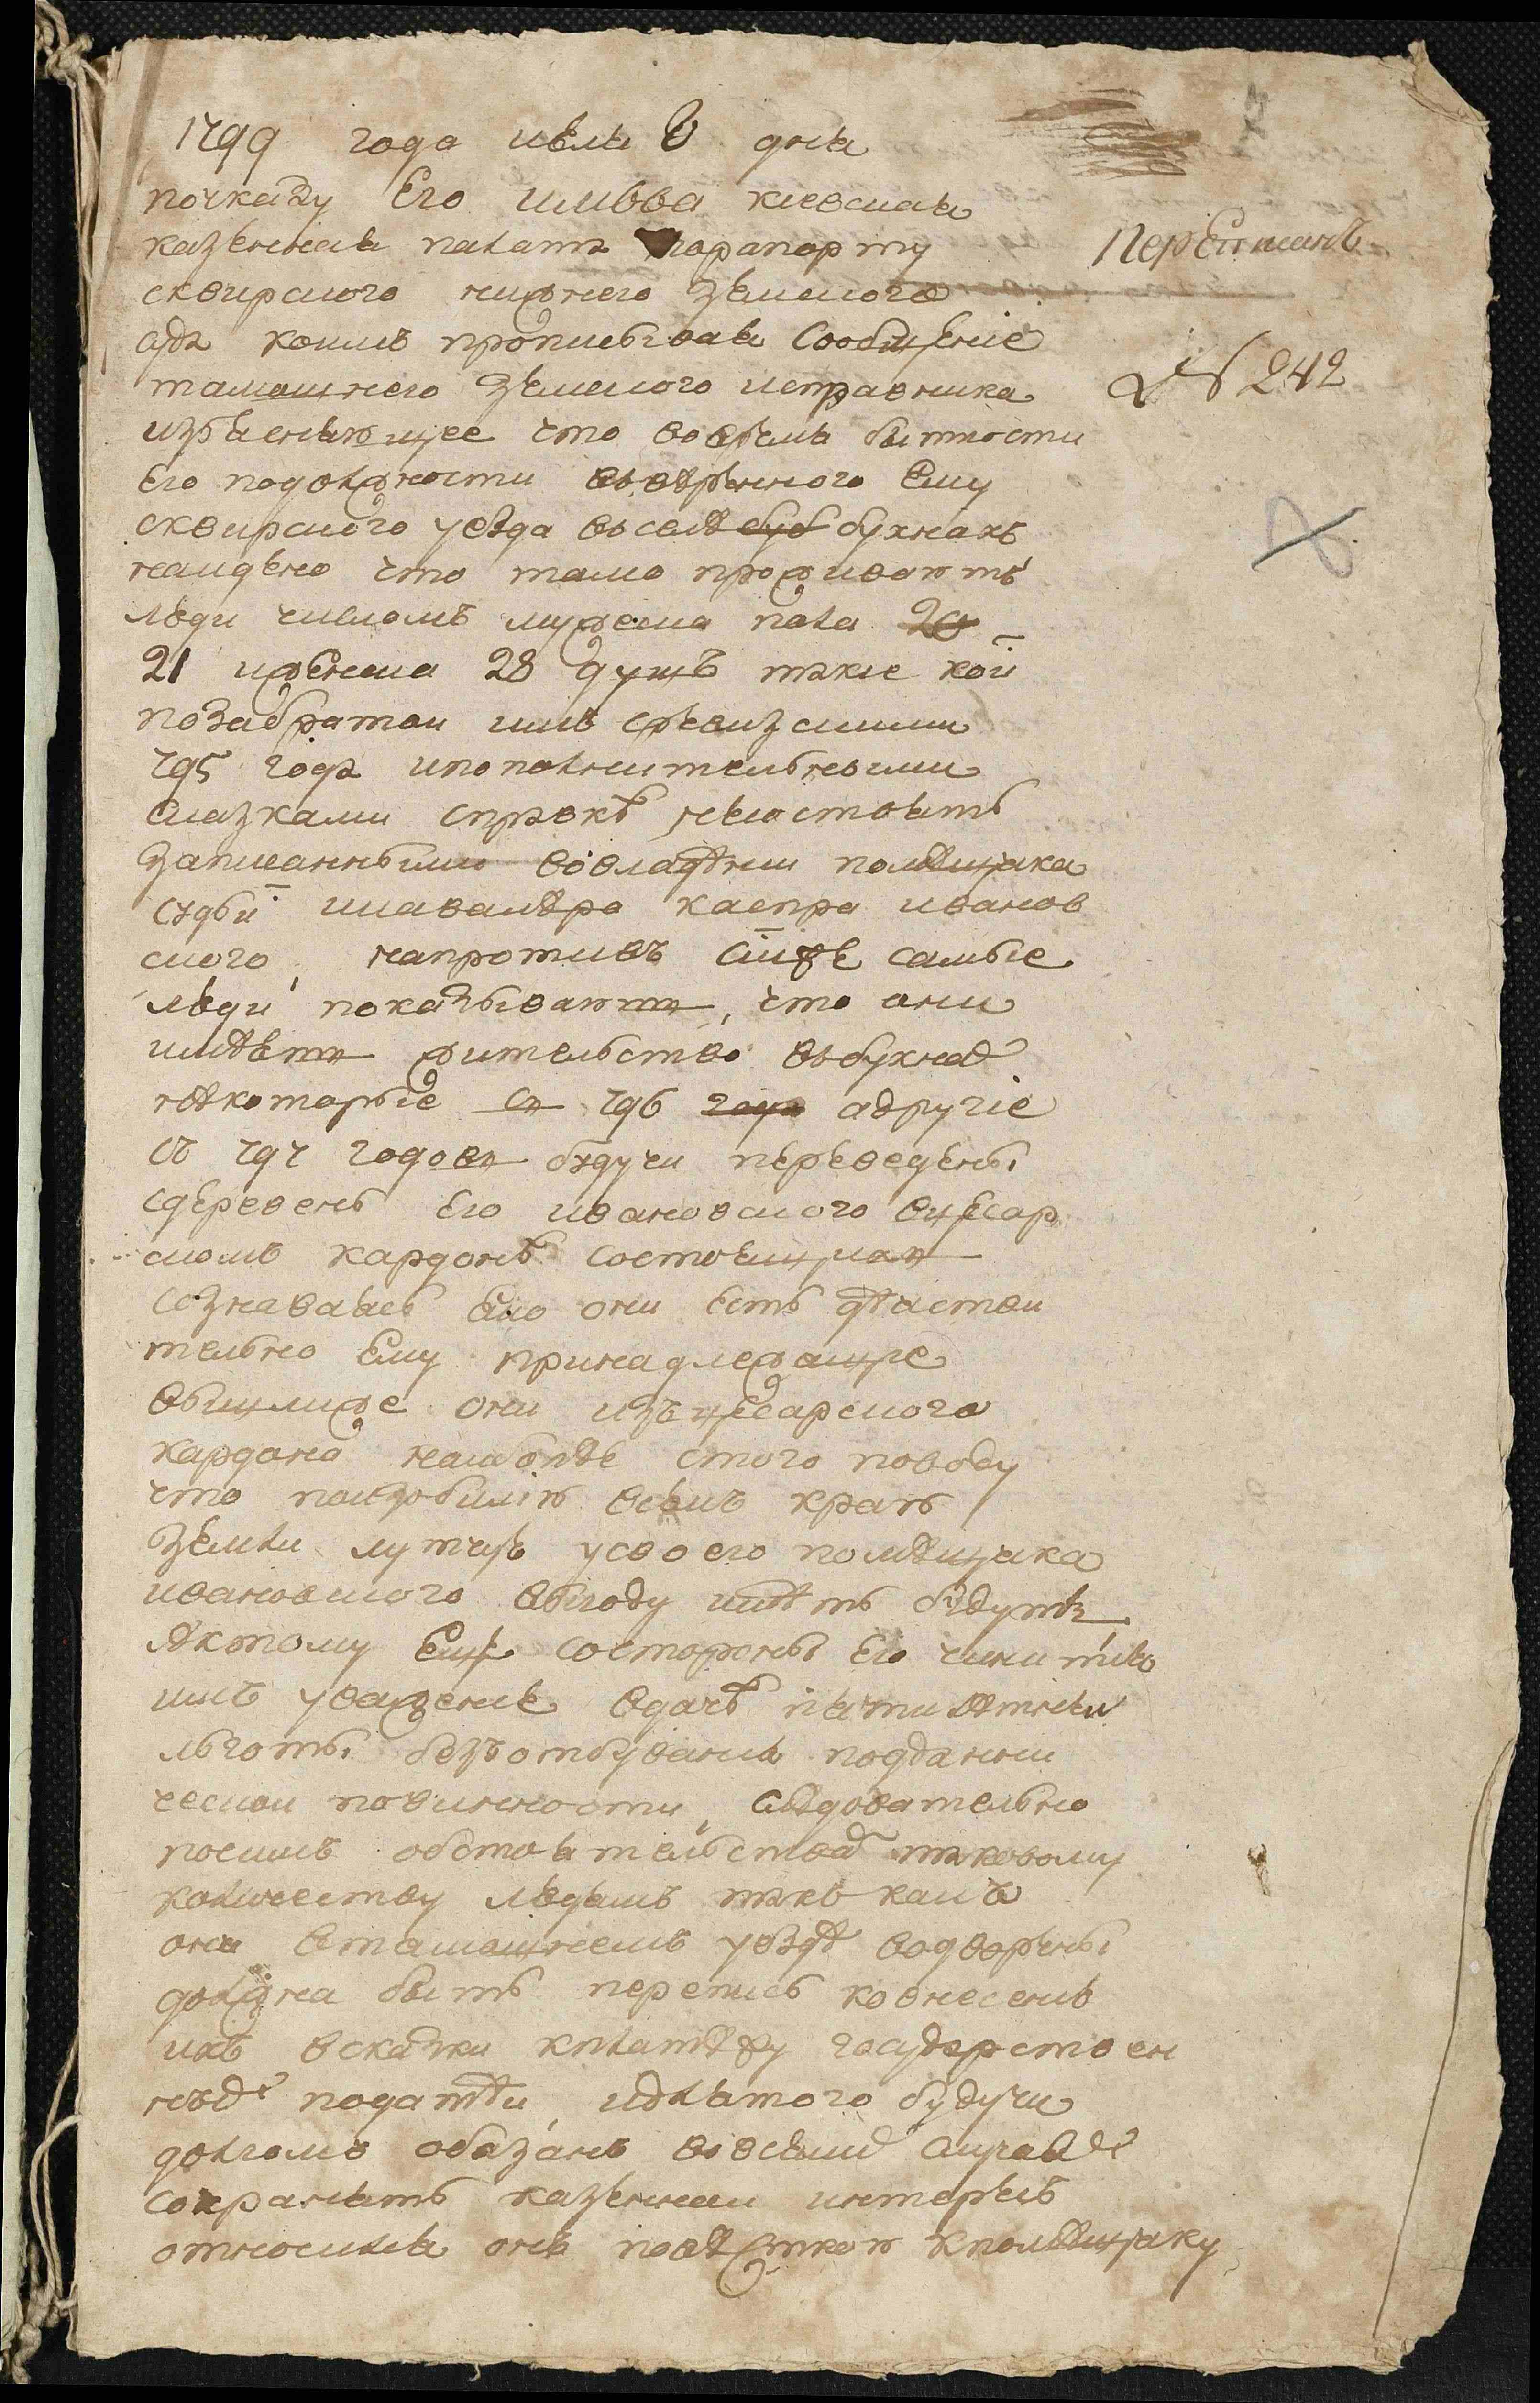 1799 года июля 6 дня
поуказу Его имп҃ва киевская
казенная палата порапорту
сквирского нижнего земского
суда коимъ прописывая сообщение
тамошнего земского исправника
изъясняющее что вовремя бытности
Его подолжности вовверенного Ему
сквирского уезда вселе бухнахъ
найдено что тамо проживаютъ
люди числомъ мужеска пола
21 иженска 28 душъ такие кои
позабратои имъ сревизскими
795 года ипополнительными
сказками справкѣ неюстоятъ
записанными вовладѣнии помѣщика
судьи каспра иванов
ского, напротивъ сииже самые
люди показываютъ, что они
имѣютъ жительство въбухнаⷯ
нѣкоторые съ 796 адругие
съ 797 годовъ будучи переведены
здеревень Его ивановского вцесар
скомъ кордонѣ состоящихъ
сознаваясь они есть дѣйстви
тельно Ему принадлежащие
вышлиже они изъ цесарского
кордона наиболѣе стого поводу
что поизобилию всемъ краю
земли лутчую усвоего помѣщика
ивановского выгоду имѣть будутъ
Актому Еще состороны Его чинитца
имъ уважение вдаче пятилѣтней
льготы безъотбувания поддани
ческои повинности, слѣдовательно
посимъ обстоятельстваⷨ таковому
количеству людямъ такъ какъ
они втамошнемъ уѣздѣ водворены
должна быть перепись ковнесению
ихъ вскаски кплатежу государствен
ныⷯ податей, идлятого будучи
долгомъ обязанъ вовсеⷨ
сохранять казенныи интересъ
относился онъ повѣсткою кпомѣщику
Перепискѣ
№ 242